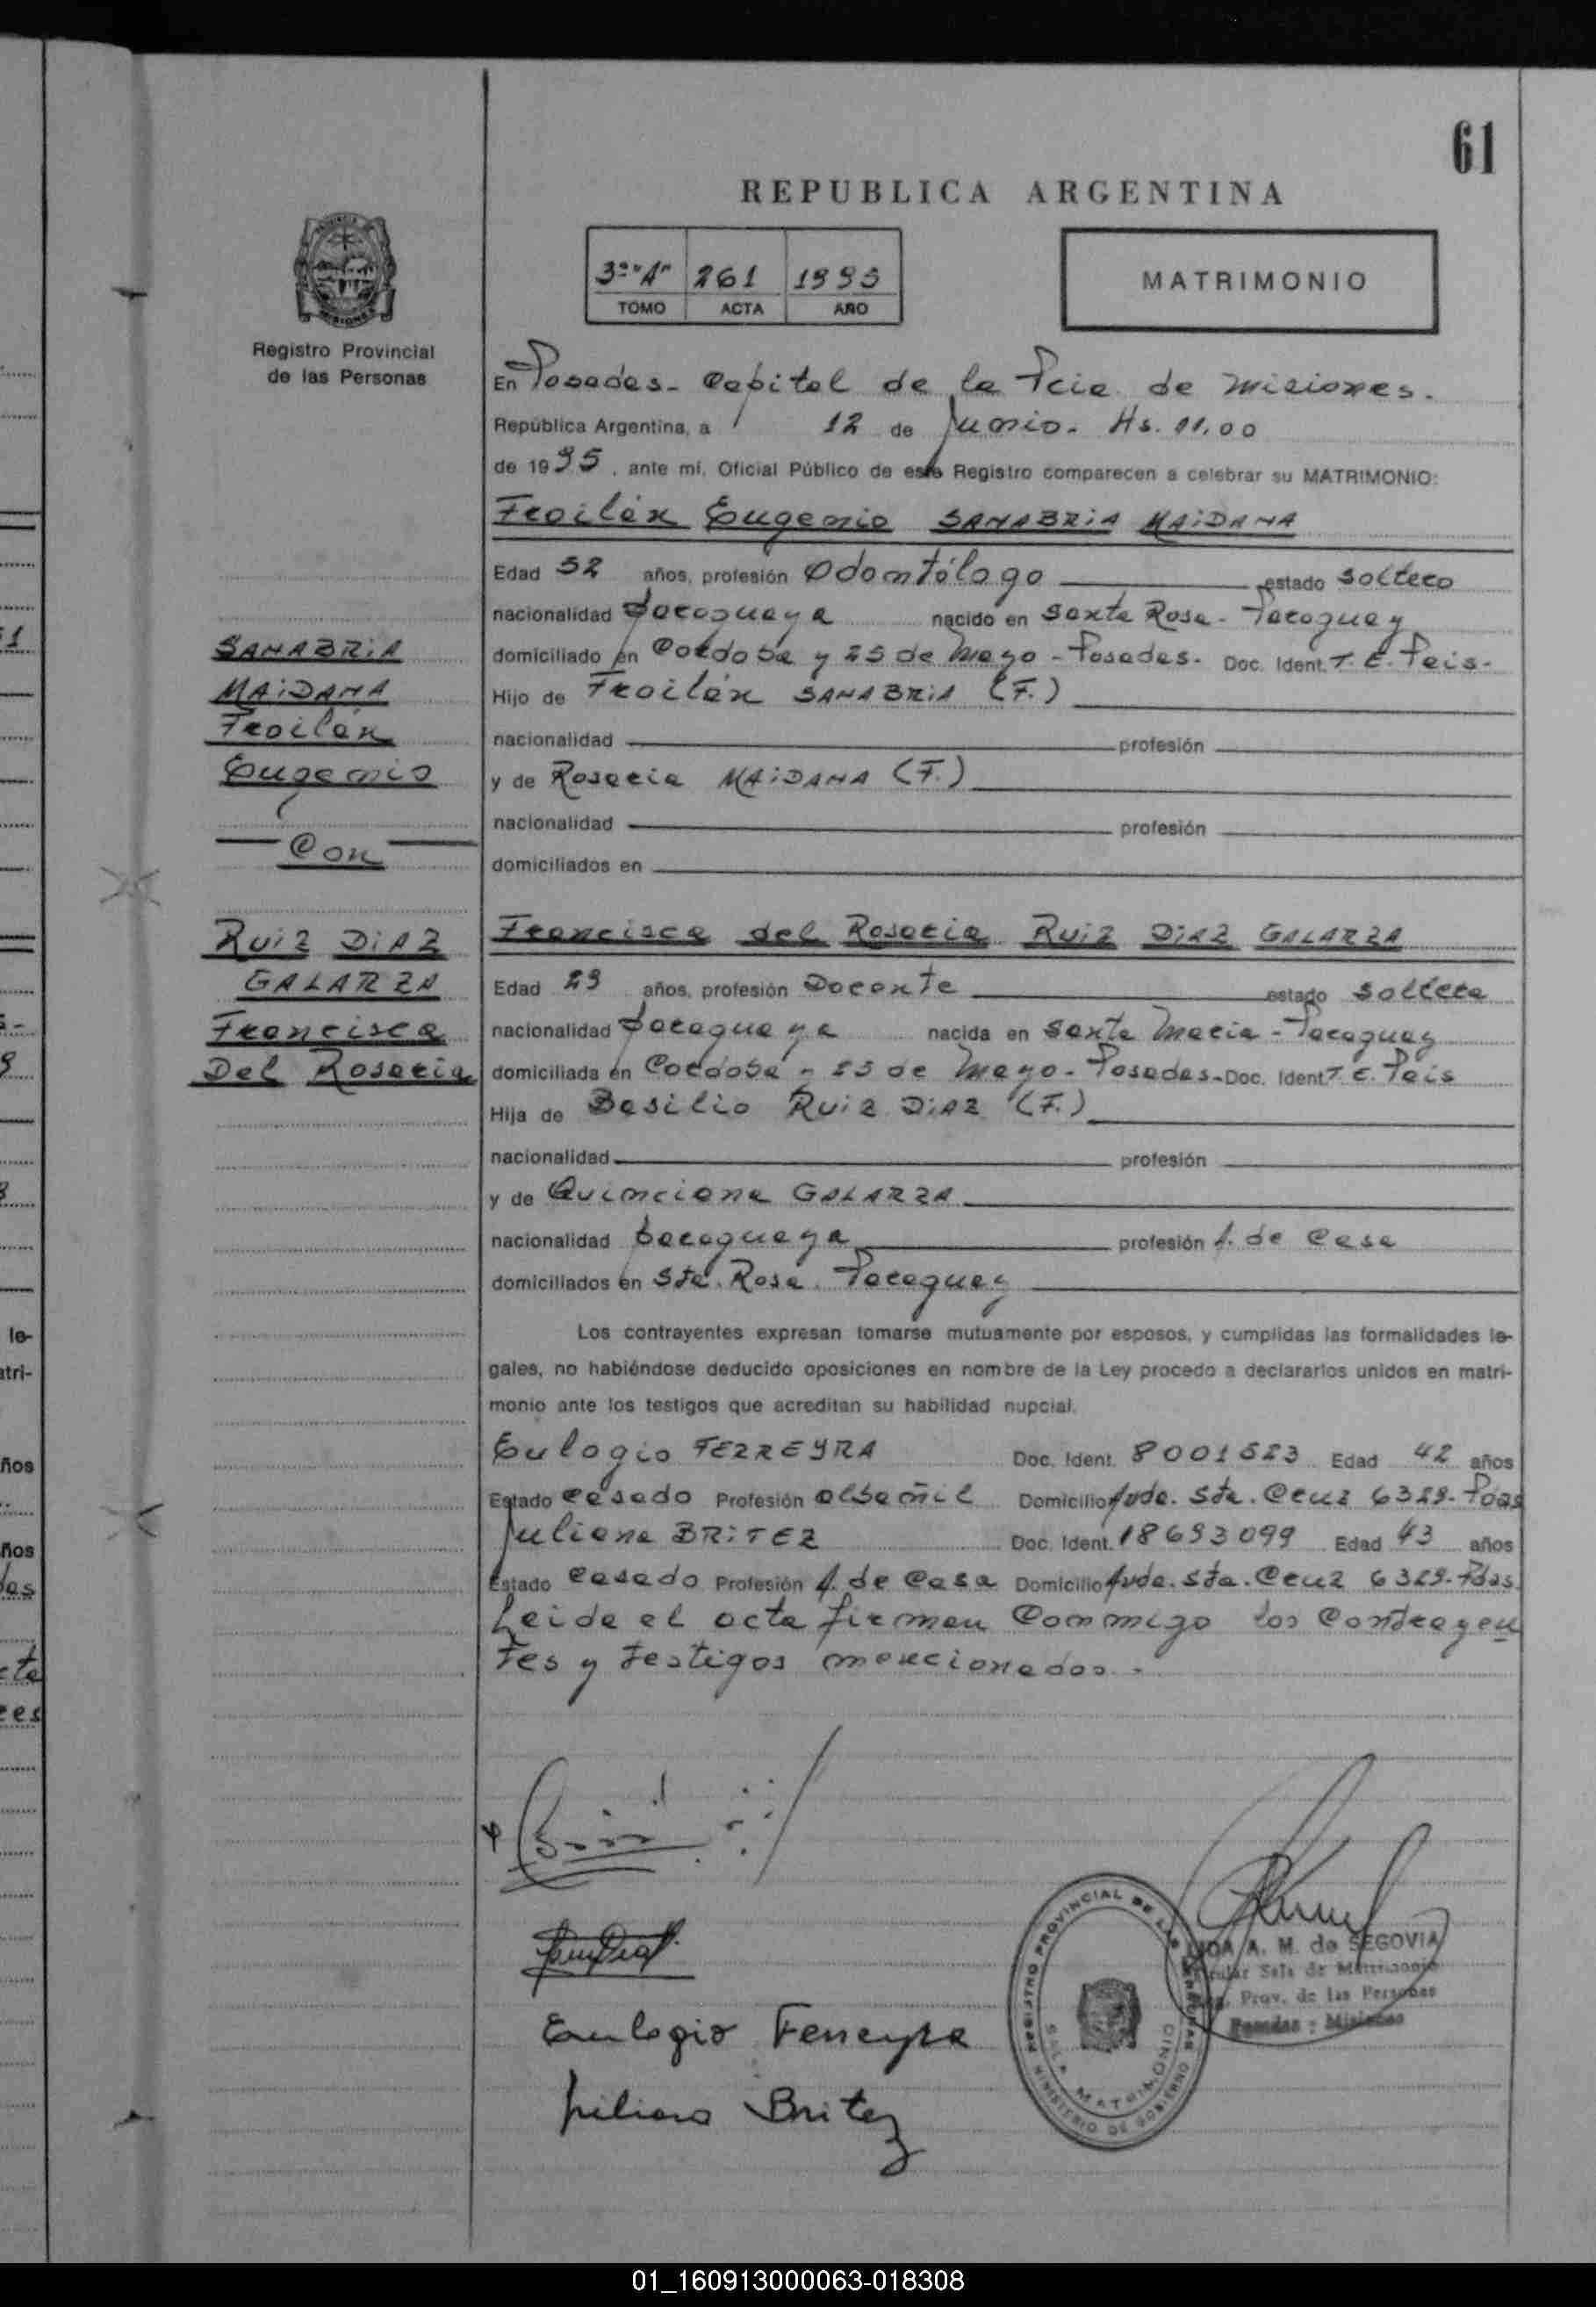 61
REPUBLICA ARGENTINA
3º "A" 261 1995
TOMO ACTA AÑO
MATRIMONIO
Registro Provincial
de las Personas
En Posadas- Capital de la Pcia de Misiones.
República Argentina, a 12 de Junio- Hs. 11,00
de 1995, ante mí, Oficial Público de este Registro comparecen a celebrar su MATRIMONIO:
Froilán Eugenio SANABRIA MAIDANA
Edad 52 años, profesión Odontólogo estado soltero
nacionalidad paraguaya nacido en Santa Rosa- Paraguay
domiciliado en Cordoba y 25 de Mayo - Posadas- Doc. Ident. T. E. Pais-
Hijo de Froilán SANABRIA (F.)
nacionalidad profesión
y de Rosaria MAIDANA (F.)
nacionalidad profesión
domiciliados en
SANABRIA
MAIDANA
Froilán
Eugenio
Con
RUIZ DIAZ
GALARZA
Francisca
Del Rosaria
Francisca del Rosaria RUIZ DIAZ GALARZA
Edad 29 años, profesión Docente estado soltera
nacionalidad paraguaya nacida en Santa Maria - Paraguay
domiciliada en Cordoba y 25 de Mayo- Posadas- Doc. Ident T. E. Pais
Hija de Basilio RUIZ DIAZ (F.)
nacionalidad profesión
y de Quinciana GALARZA
nacionalidad paraguaya profesión A. de Casa
domiciliados en Sta. Rosa. Paraguay
Los contrayentes expresan tomarse mutuamente por esposos, y cumplidas las formalidades le-
gales, no habiéndose deducido oposiciones en nombre de la Ley procedo a declararlos unidos en matri-
monio ante los testigos que acreditan su habilidad nupcial.
Eulogio FERREYRA Doc. Ident. 8001523 Edad 42 años
Estado casado Profesión albañil Domicilio Avda. Sta. Cruz 6329- Pdas
Juliana BRITEZ Doc. Ident. 18693099 Edad 43 años
Estado casado Profesión A. de Casa Domicilio Avda. Sta. Cruz 6329- Pdas.
Leida el acta firman conmigo los contrayen
tes y testigos mencionados.
Eulogio Ferreyra
Juliana Britez
REGISTRO PROVINCIAL DE LAS PERSONAS
SALA MATRIMONIO
MINISTERIO DE GOBIERNO
A. M. de SEGOVIA
Sala de Matrimonio
Prov. de las Personas
Posadas - Misiones
01_160913000063-018308